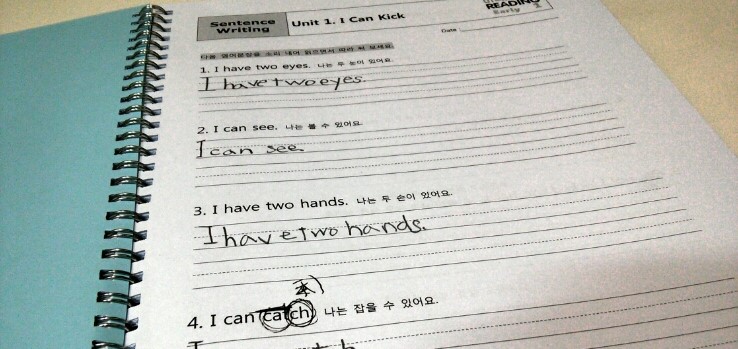 Sentence Writing
Unit 1. I Can Kick
READING
Early 1
Date
다음 영어문장을 소리 내어 읽으면서 따라 써 보세요.
1. I have two eyes. 나는 두 눈이 있어요.
I have two eyes.
2. I can see. 나는 볼 수 있어요.
I can see.
3. I have two hands. 나는 두 손이 있어요.
I have two hands.
4. I can catch 나는 잡을 수 있어요.
I